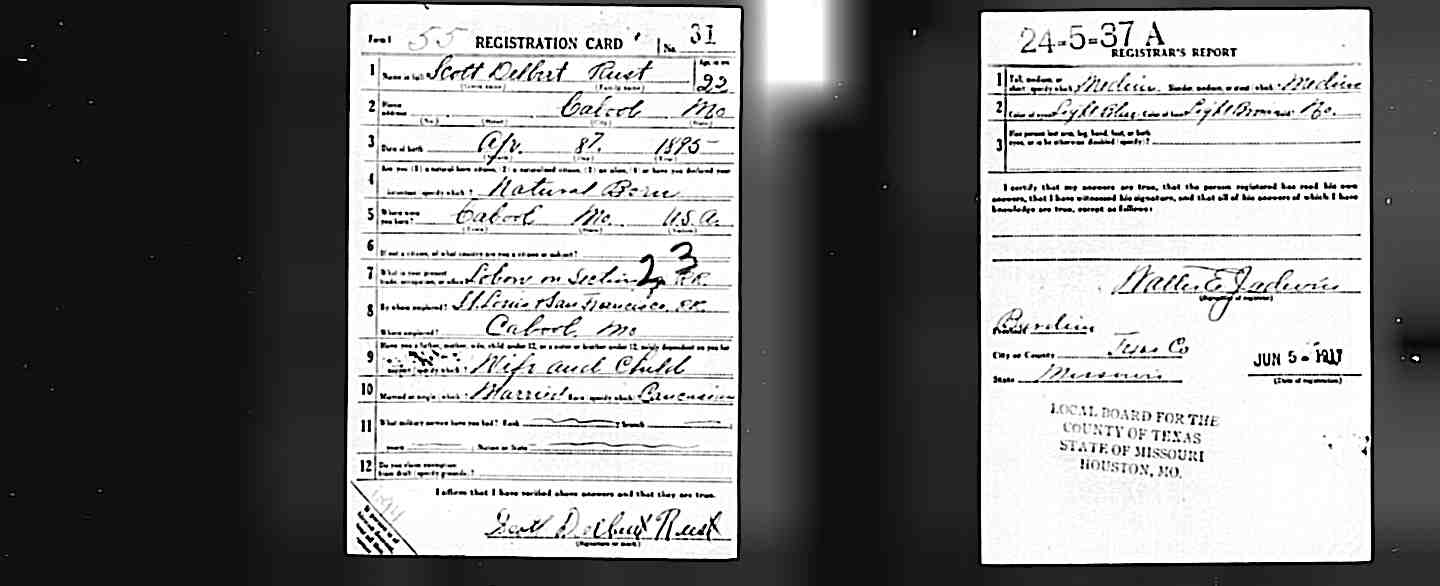 Form 1 55 REGISTRATION CARD No. 31
1 Name in full Scott Delbert Rust Age, in yrs. 22
(Given name) (Family name)
2 Home address Cabool Mo
(No.) (Street) (City) (State)
3 Date of birth Apr. 8 1895
(Month) (Day) (Year)
4 Are you (1) a natural born citizen, (2) a naturalized citizen, (3) an alien, (4) or have you declared your
intention (specify which)? Natural Born
5 Where were you born? Cabool Mo. U.S.A.
(Town) (State) (Nation)
6 If not a citizen, of what country are you a citizen or subject?
23
7 What is your present trade, occupation, or office? on Section R.R.
8 By whom employed? St. Louis & San Francisco RR.
Where employed? Cabool, Mo
9 Have you a father, mother, wife, child under 12, or a sister or brother under 12, solely dependent on you for
support (specify which)? Wife and Child
10 Married or single (which)? Married Race (specify which)? Caucasian
11 What military service have you had? Rank ; branch
years ; Nation or State
12 Do you claim exemption
from draft (specify grounds)?
I affirm that I have verified above answers and that they are true.
Scott Delbert Rust
(Signature or mark)
24-5-37 A
REGISTRAR'S REPORT
1 Tall, medium, or short (specify which)? Medium Slender, medium, or stout (which)? Medium
2 Color of eyes? Light Blue Color of hair? Light Brown Bald? No.
3 Has person lost arm, leg, hand, foot, or both
eyes, or is he otherwise disabled (specify)?
I certify that my answers are true, that the person registered has read his own
answers, that I have witnessed his signature, and that all of his answers of which I have
knowledge are true, except as follows:
Walter E.
(Signature of registrar)
Precinct Burdine
City or County Texas Co
State Missouri
JUN 5 - 1917
(Date of registration)
LOCAL BOARD FOR THE
COUNTY OF TEXAS
STATE OF MISSOURI
HOUSTON, MO.